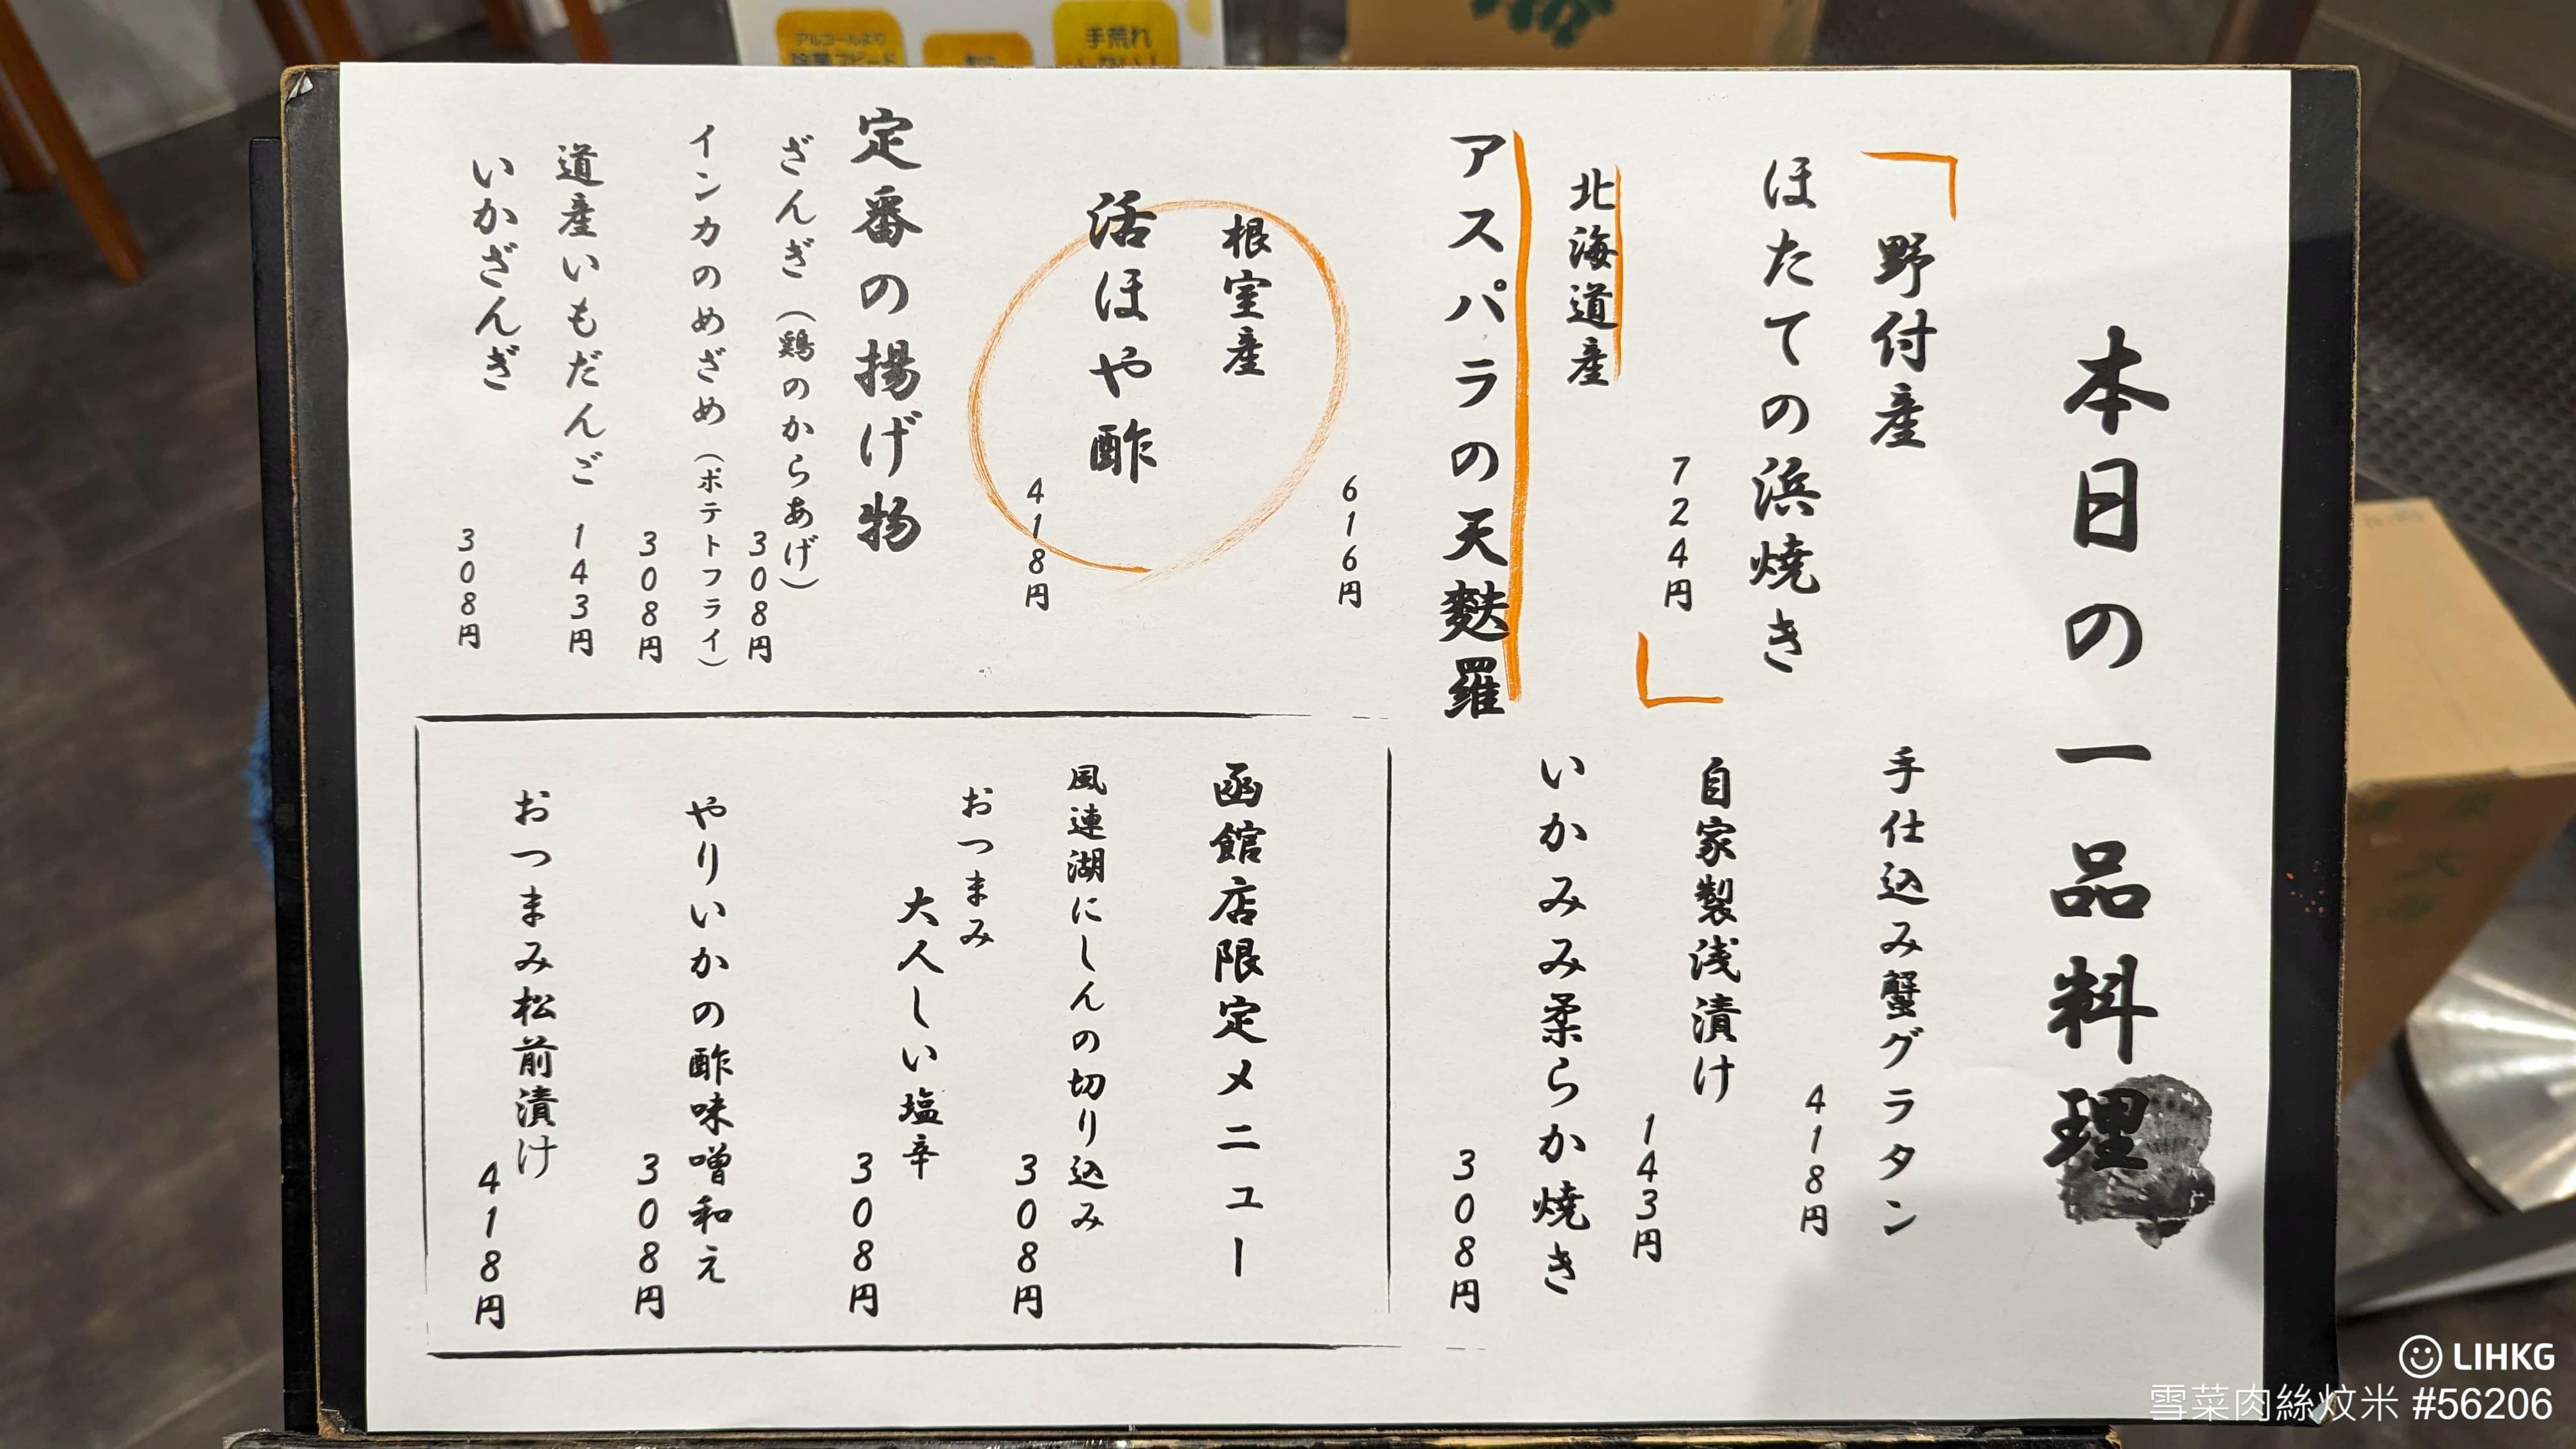 本日の一品料理
野付産
ほたての浜焼き
724円
北海道産
アスパラの天麩羅
616円
根室産
活ほや酢
418円
定番の揚げ物
ざんぎ（鶏のからあげ）
308円
インカのめざめ（ポテトフライ）
308円
道産いもだんご
143円
いかざんぎ
308円
手仕込み蟹グラタン
418円
自家製浅漬け
143円
いかみみ柔らか焼き
308円
函館店限定メニュー
風連湖にしんの切り込み
308円
おつまみ
大人しい塩辛
308円
やりいかの酢味噌和え
308円
おつまみ松前漬け
418円
アルコールより
除菌スピード
手荒れ
しない！
LIHKG
雪菜肉絲炆米 #56206